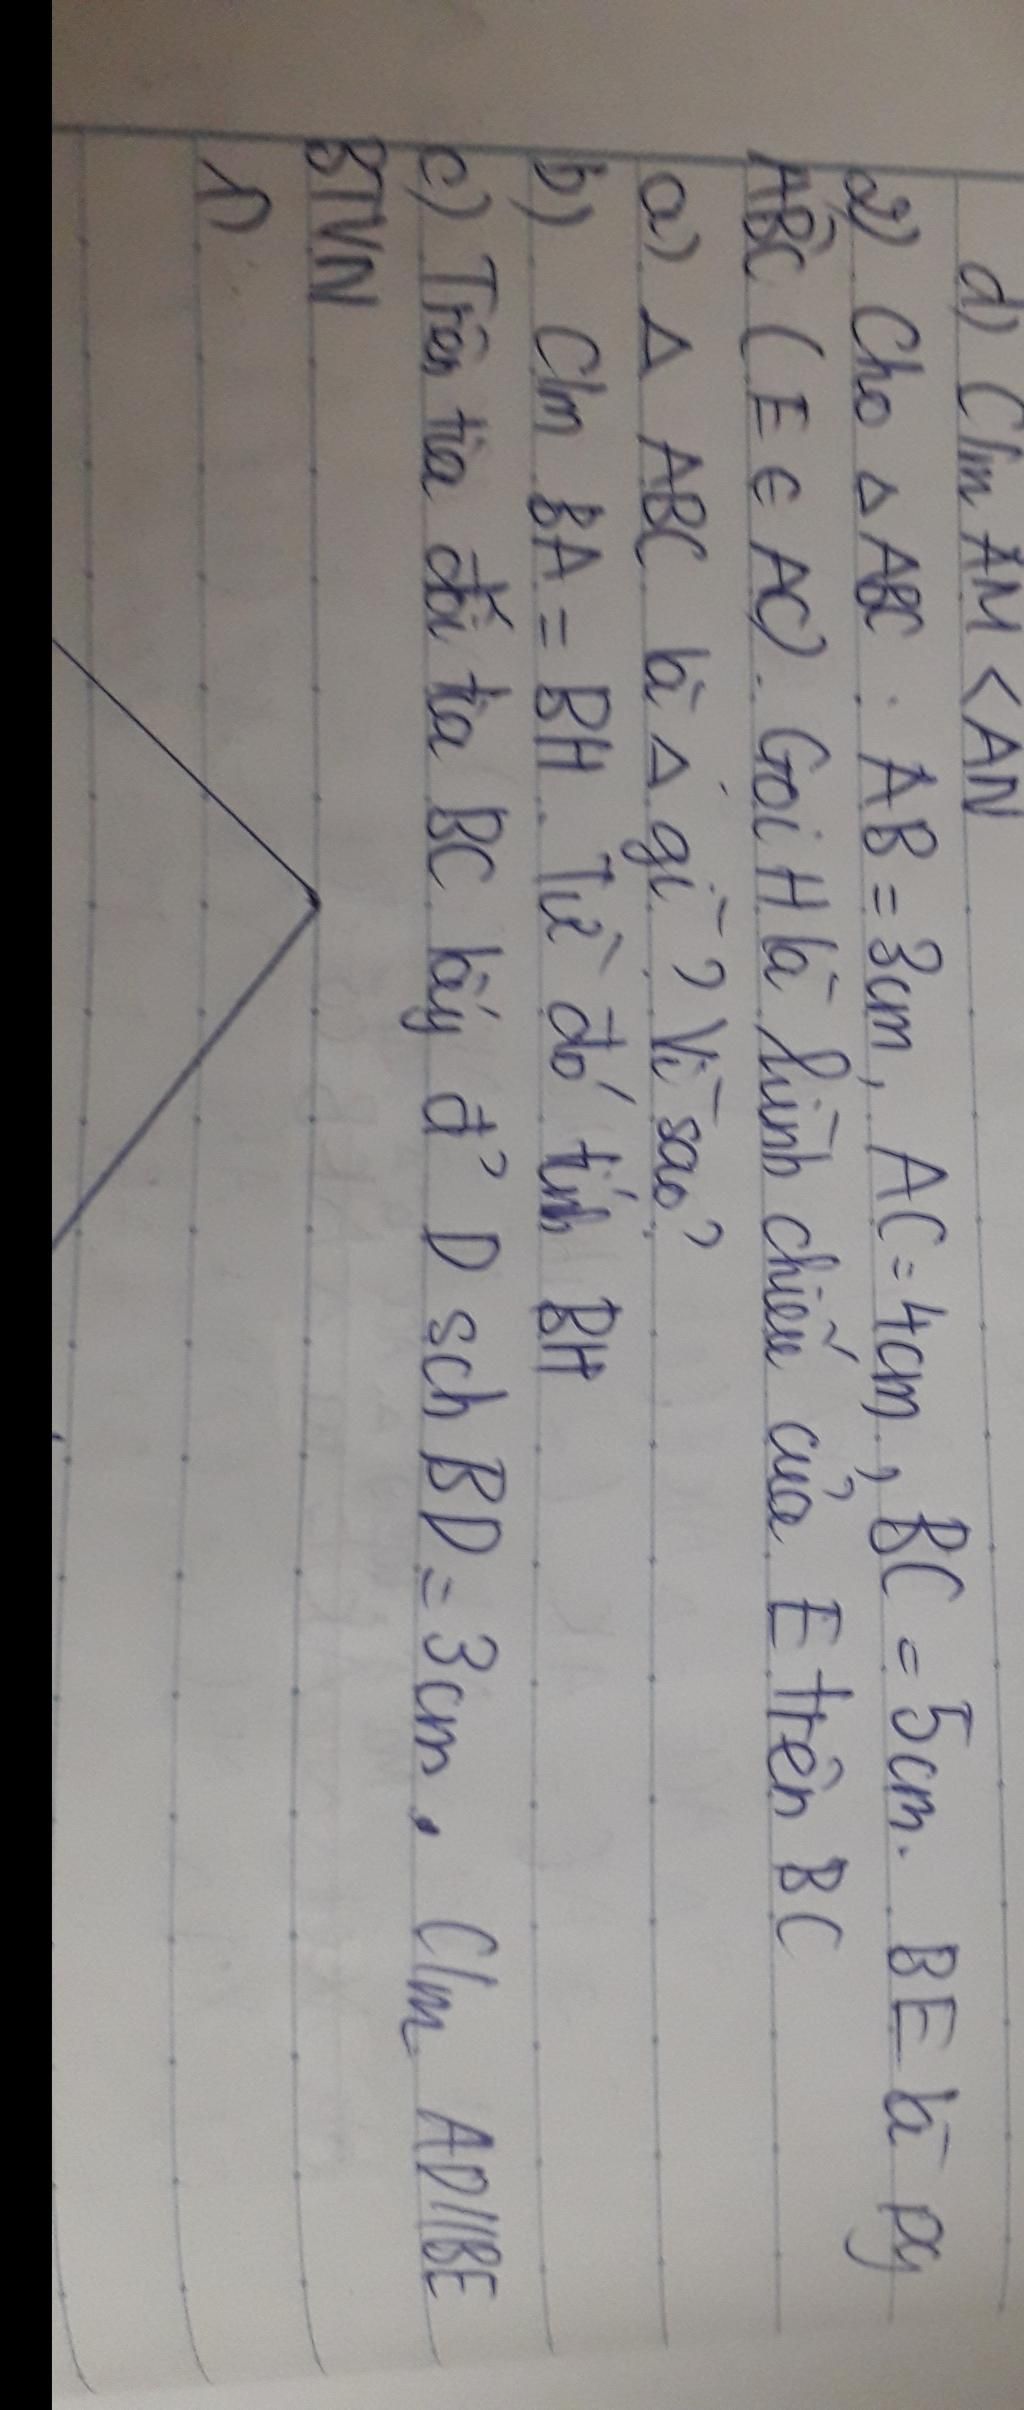 d) C/m AM < AN
2) Cho Δ ABC : AB = 3cm, AC = 4cm, BC = 5cm. BE là pg
ABC (E ∈ AC). Gọi H là hình chiếu của E trên BC
a) Δ ABC là Δ gì? Vì sao?
b) C/m BA = BH. Từ đó tính BH
c) Trên tia đối tia BC lấy đ' D sch BD = 3cm. C/m AD//BE
BTVN
1)